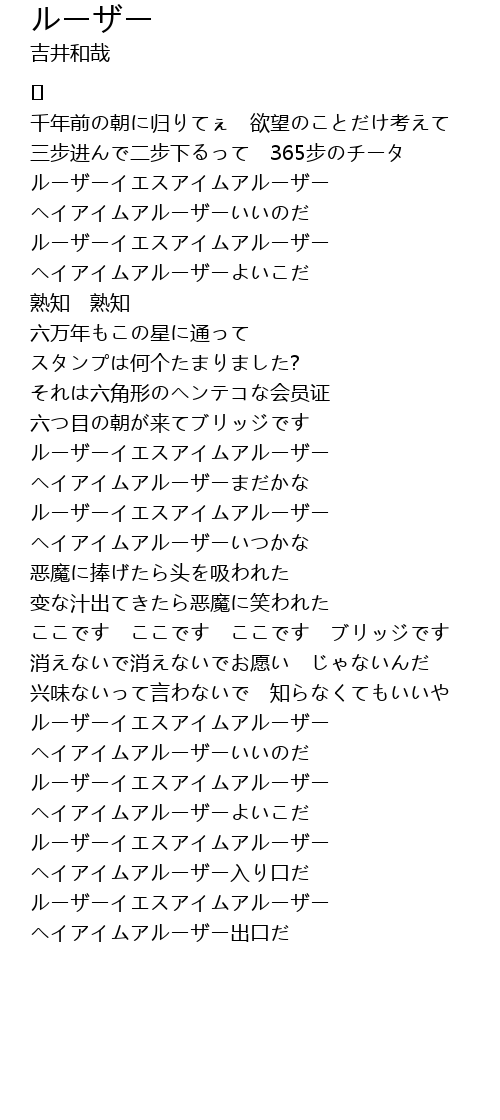 ルーザー
吉井和哉
千年前の朝に归りてぇ　欲望のことだけ考えて
三歩进んで二歩下るって　365歩のチータ
ルーザーイエスアイムアルーザー
ヘイアイムアルーザーいいのだ
ルーザーイエスアイムアルーザー
ヘイアイムアルーザーよいこだ
熟知　熟知
六万年もこの星に通って
スタンプは何个たまりました?
それは六角形のヘンテコな会员证
六つ目の朝が来てブリッジです
ルーザーイエスアイムアルーザー
ヘイアイムアルーザーまだかな
ルーザーイエスアイムアルーザー
ヘイアイムアルーザーいつかな
恶魔に捧げたら头を吸われた
变な汁出てきたら恶魔に笑われた
ここです　ここです　ここです　ブリッジです
消えないで消えないでお愿い　じゃないんだ
兴味ないって言わないで　知らなくてもいいや
ルーザーイエスアイムアルーザー
ヘイアイムアルーザーいいのだ
ルーザーイエスアイムアルーザー
ヘイアイムアルーザーよいこだ
ルーザーイエスアイムアルーザー
ヘイアイムアルーザー入り口だ
ルーザーイエスアイムアルーザー
ヘイアイムアルーザー出口だ